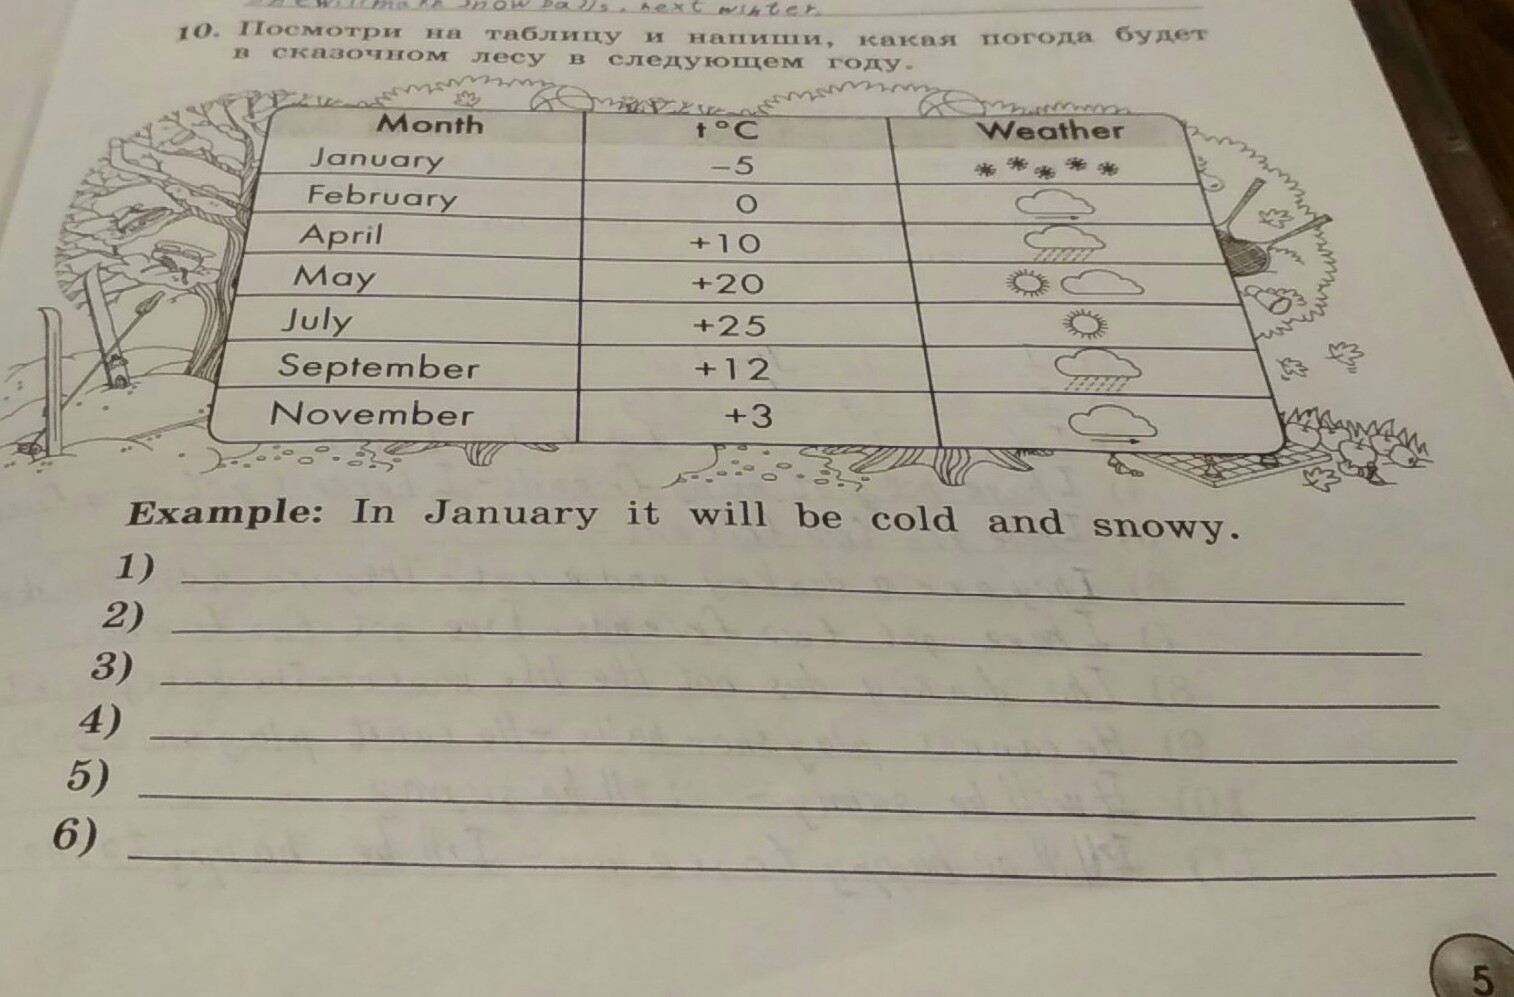 snow balls, next winter.
10. Посмотри на таблицу и напиши, какая погода будет
в сказочном лесу в следующем году.
Month t°C Weather
January -5
February 0
April +10
May +20
July +25
September +12
November +3
Example: In January it will be cold and snowy.
1)
2)
3)
4)
5)
6)
5